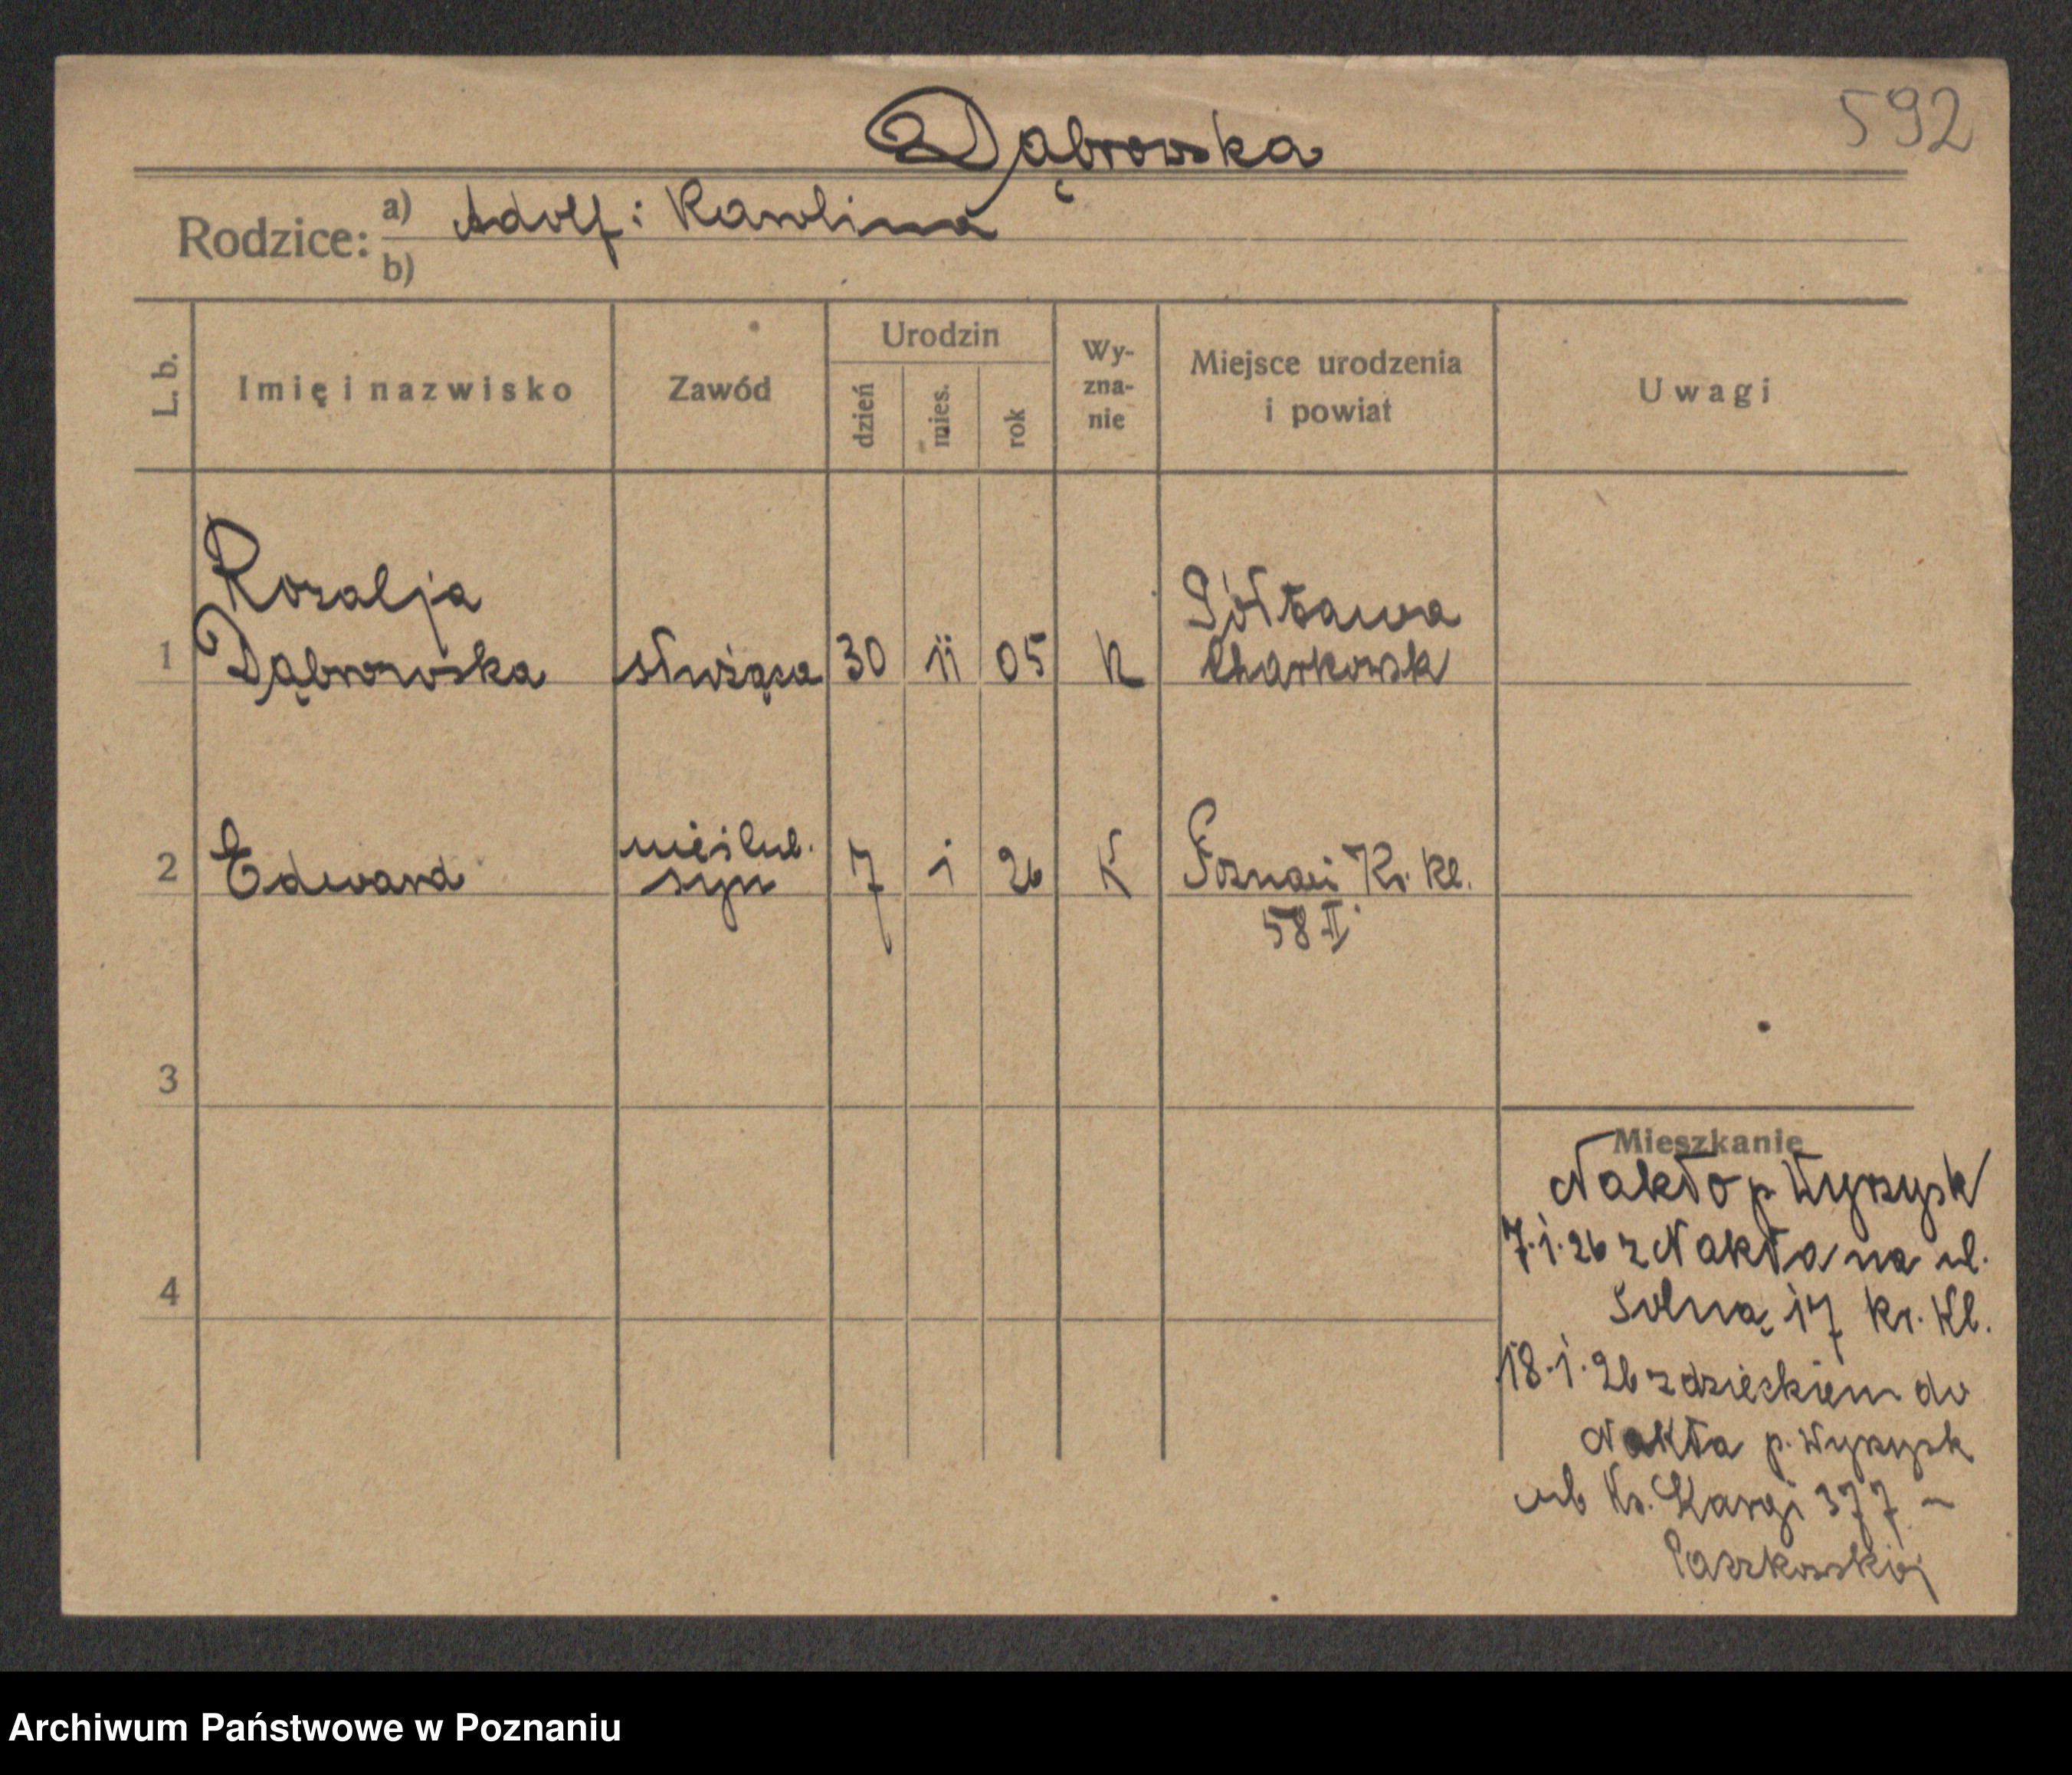 592
Dąbrowska
Rodzice: a) Adolf i Karolina
b)
L. b.
Imię i nazwisko
Zawód
Urodzin
dzień
mies.
rok
Wy-
zna-
nie
Miejsce urodzenia
i powiat
Uwagi
1 Rozalja
Dąbrowska służąca 30 11 05 K Półtawa
Charkowsk
2 Edward nieślub.
syn 7 1 26 K Poznań Kr. kl.
58 II.
3
4
Mieszkanie
Nakło p. Wyrzysk
7.1.26 z Nakła na ul.
Solną 17 Kr. Kl.
18.1.26 z dzieckiem do
Nakła p. Wyrzysk
ul. Ks. 377 –
Paszkowskiej
Archiwum Państwowe w Poznaniu